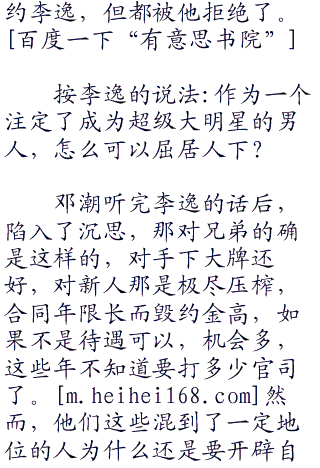 约李逸，但都被他拒绝了。
[百度一下“有意思书院”]
按李逸的说法:作为一个
注定了成为超级大明星的男
人，怎么可以屈居人下？
邓潮听完李逸的话后，
陷入了沉思，那对兄弟的确
是这样的，对手下大牌还
好，对新人那是极尽压榨，
合同年限长而毁约金高，如
果不是待遇可以，机会多，
这些年不知道要打多少官司
了。[m.heihei168.com]然
而，他们这些混到了一定地
位的人为什么还是要开辟自